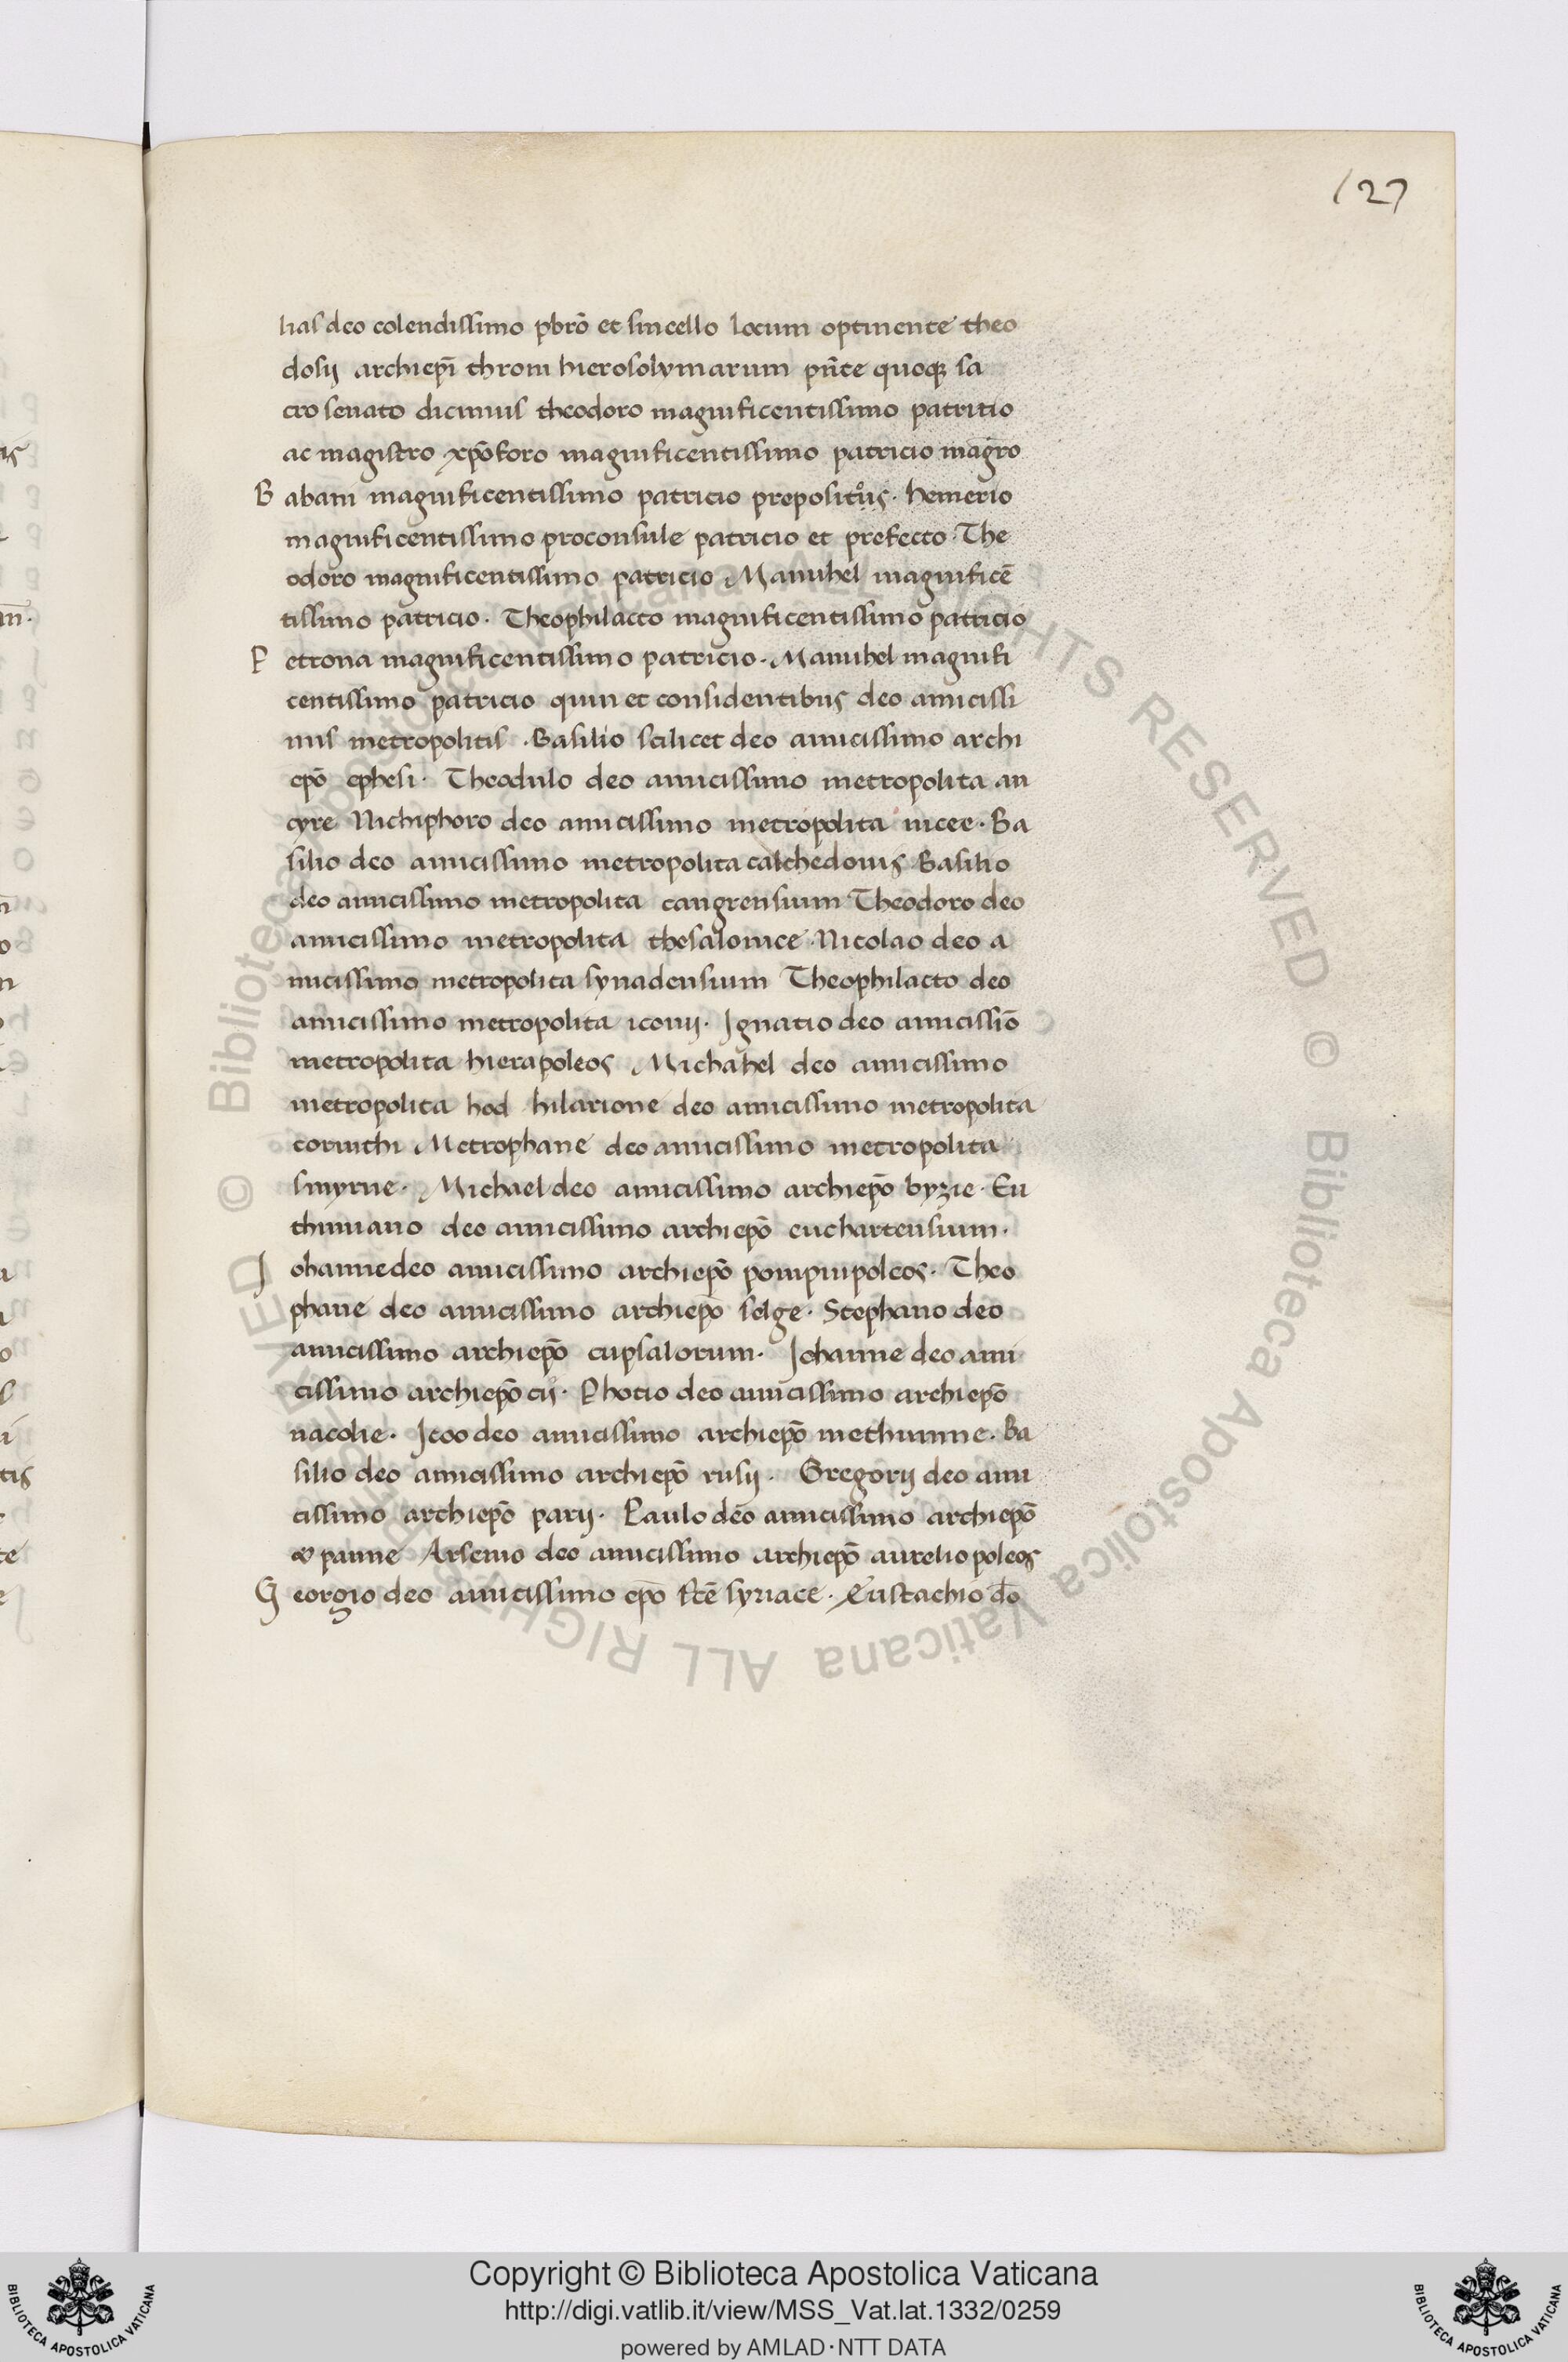 127
lias deo colendissimo pbrō et sincello locum optinente theo
dosij archiepī throni hierosolymarum pn̄te quoqꝫ sa
cro senato dicimus theodoro magnificentissimo patritio
ac magistro xpōforo magnificentissimo patricio magro
B abani magnificentissimo patricio prepositus · hemerio
magnificentissimo proconsule patricio et prefecto · The
odoro magnificentissimo patricio Manuhel magnificē
tissimo patricio · Theophilacto magnificentissimo patricio
P etrona magnificentissimo patricio · Manuhel magnifi
centissimo patricio quin et considentibus deo amicissi
mis metropolitis · Basilio scilicet deo amicissimo archi
epō ephesi · Theodulo deo amicissimo metropolita an
cyre Nichiphoro deo amicissimo metropolita nicee · Ba
silio deo amicissimo metropolita calchedonis Basilio
deo amicissimo metropolita cangrensium Theodoro deo
amicissimo metropolita thesalonice · Nicolao deo a
micissimo metropolita synadensium Theophilacto deo
amicissimo metropolita iconij · Ignatio deo amicissiō
metropolita hierapoleos Michahel deo amicissimo
metropolita hod hilarione deo amicissimo metropolita
corinthi Metrophane deo amicissimo metropolita
smyrne · Michael deo amicissimo archiepō byzie · Eu
thimiano deo amicissimo archiepō euchartensium ·
J ohanne deo amicissimo archiepō pompiupoleos · Theo
phane deo amicissimo archiepō selge · Stephano deo
amicissimo archiepō cupsalorum · Johanne deo ami
cissimo archiepō cij · Photio deo amicissimo archiepō
nacolie · Icoo deo amicissimo archiepō methimne · Ba
silio deo amicissimo archiepō rusij · Gregorij deo ami
cissimo archiepō parij · Paulo deo amicissimo archiepō
panne Arsenio deo amicissimo archiepō aureliopoleos
G eorgio deo amicissimo epō syriace · Eustachio dō
© Biblioteca Apostolica Vaticana ALL RIGHTS RESERVED © Biblioteca Apostolica Vaticana ALL RIGHTS RESERVED
Copyright © Biblioteca Apostolica Vaticana
http://digi.vatlib.it/view/MSS_Vat.lat.1332/0259
powered by AMLAD·NTT DATA
BIBLIOTECA APOSTOLICA VATICANA
BIBLIOTECA APOSTOLICA VATICANA